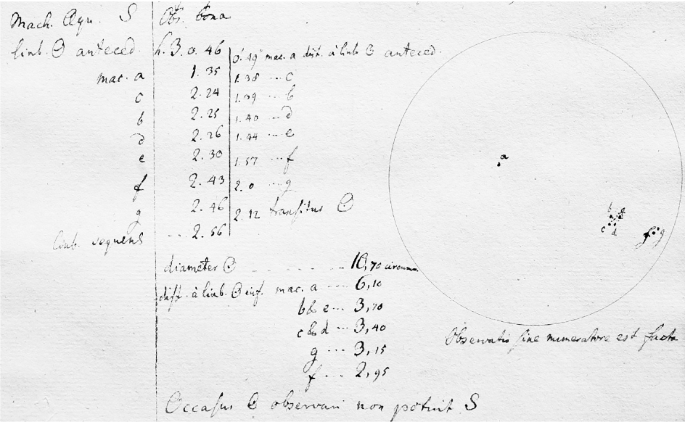 Mach. Aqu. S Obs. bona
limb. ☉ anteced. h. 3. 0. 46
mac. a 1. 35 0. 49" mac. a dist. à limb ☉ anteced.
c 2. 24 1. 38 ... c
b 2. 25 1. 39 ... b
d 2. 26 1. 40 ... d
e 2. 30 1. 44 ... e
f 2. 43 1. 57 ... f
g 2. 46 2. 0 ... g
limb. sequens .. 2. 56 2. 12 transitus ☉
a
c d
f g
diameter ☉ ........ 10,70
dist. à limb. ☉ inf. mac. a ... 6,10
b & e ... 3,70
c & d ... 3,40
g ... 3,15
f ... 2,95
Observatio sine numeratore est facta
Occasus ☉ observari non potuit S